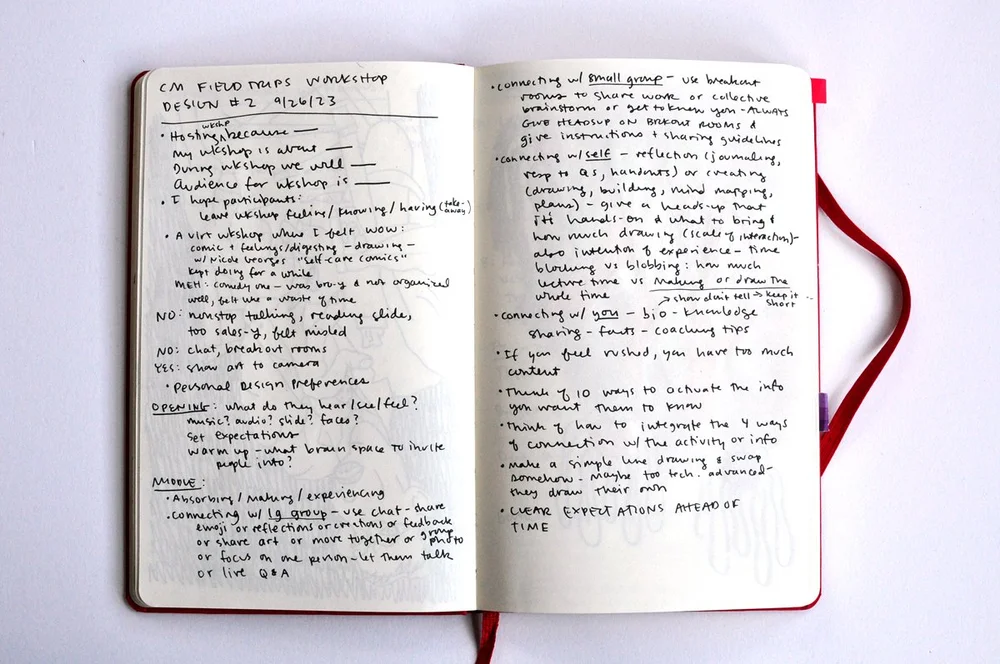 CM FIELDTRIPS WORKSHOP
DESIGN #2 9/26/23
• Hosting wkshp because —
My wkshop is about —
During wkshop we will —
Audience for wkshop is —
• I hope participants:
leave wkshop feeling/knowing/having (take-away)
• A virt wkshop where I felt WOW:
comic + feelings/digesting - drawing -
w/ Nicole Georges "self-care comics"
kept doing for a while
MEH: comedy one - was bro-y & not organized
well, felt like a waste of time
NO: nonstop talking, reading slide,
too sales-y, felt misled
NO: chat, breakout rooms
YES: show art to camera
• Personal Design Preferences
OPENING: what do they hear/see/feel?
music? audio? slide? faces?
Set expectations
warm up - what brain space to invite
people into?
MIDDLE:
• Absorbing/making/experiencing
• Connecting w/ lg group - use chat - share
emoji or reflections or creations or feedback
or share art or move together or group photo
or focus on one person - let them talk
or live Q&A
• connecting w/ small group - use breakout
rooms to share work or collective
brainstorm or get to know you - ALWAYS
GIVE HEADSUP ON BRKOUT ROOMS &
give instructions + sharing guidelines
• connecting w/ self - reflection (journaling,
resp to Qs, handouts) or creating
(drawing, building, mind mapping,
plans) - give a heads-up that
it's hands-on & what to bring &
how much drawing (scale of interaction) -
also intention of experience - time
blocking vs blobbing: how much
lecture time vs making or draw the
whole time → show don't tell → keep it short
• connecting w/ you - bio - knowledge
sharing - facts - coaching tips
• If you feel rushed, you have too much
content
• Think of 10 ways to activate the info
you want them to know
• Think of how to integrate the 4 ways
of connection w/ the activity or info
• Make a simple line drawing & swap
somehow - maybe too tech. advanced -
they draw their own
• CLEAR EXPECTATIONS AHEAD OF
TIME